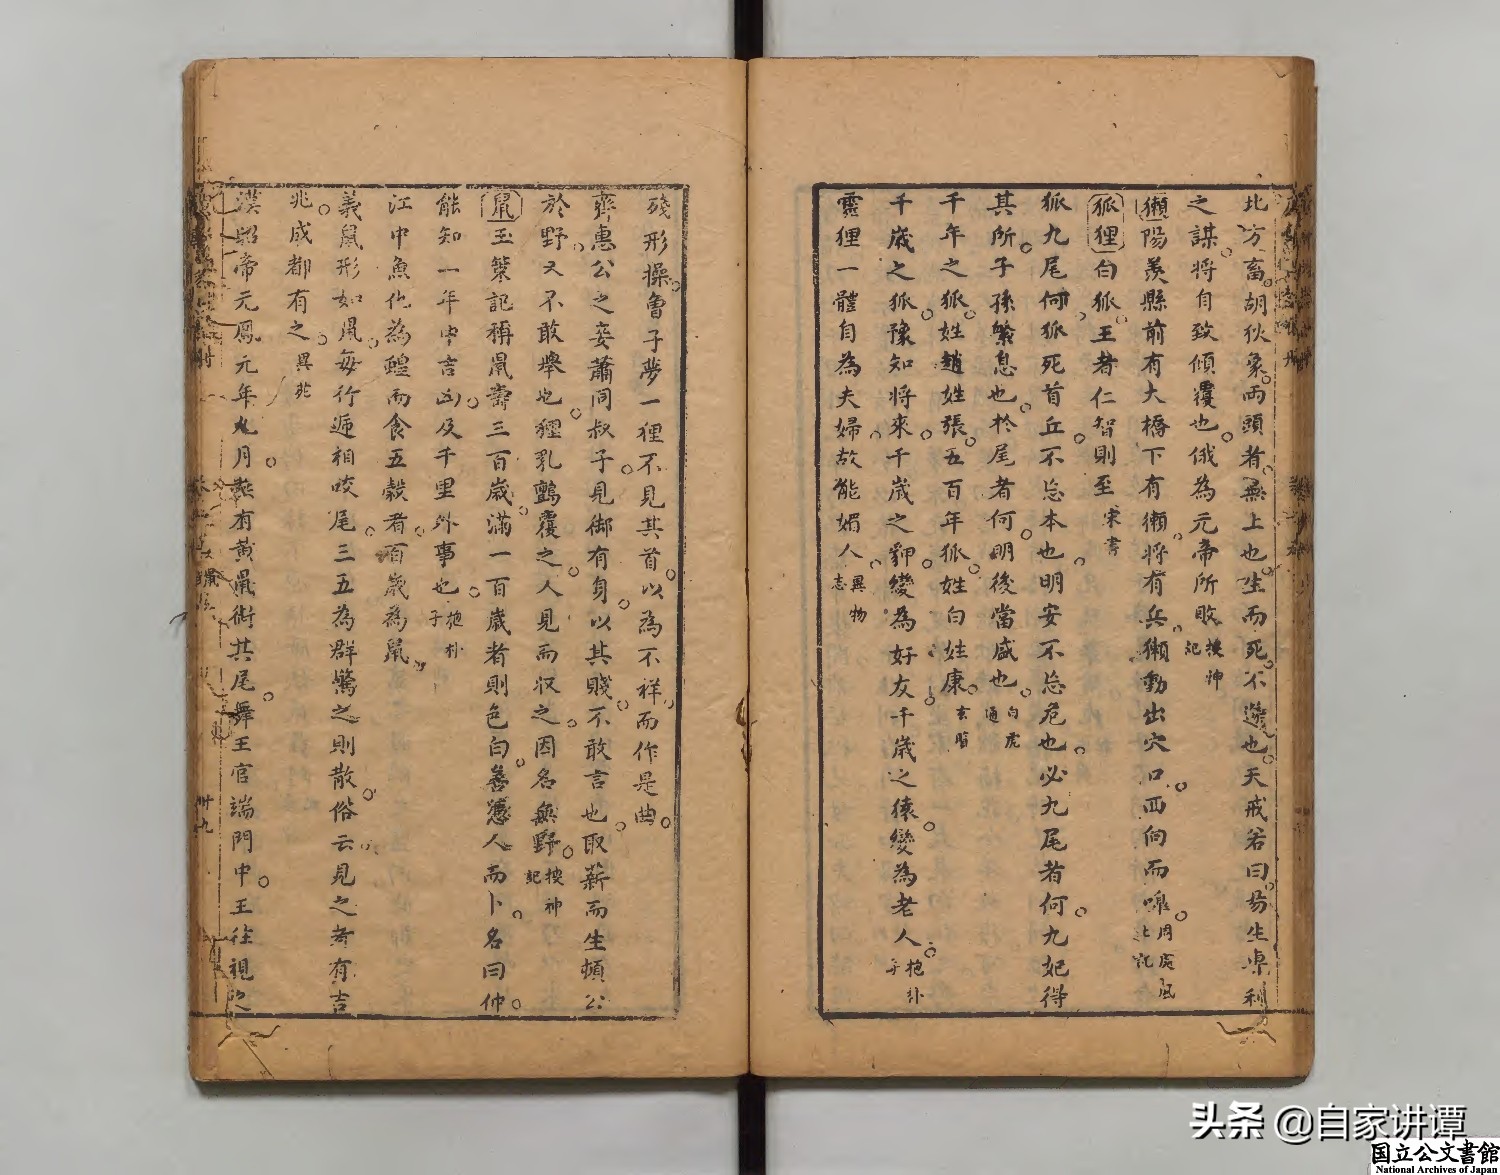 北方畜胡狄象兩頭者無上也生而死不遂也天戒若曰易生專利
之謀將自致傾覆也俄為元帝所敗搜神記
獺陽羨縣前有大橋下有獺將有兵獺動出穴口西向而嘷周處風土記
狐狸白狐王者仁智則至宋書
狐九尾何狐死首丘不忘本也明安不忘危也必九尾者何九妃得
其所子孫繁息也於尾者何明後當盛也白虎通
千年之狐姓趙姓張五百年狐姓白姓康玄中
千歲之狐豫知將來千歲之貍變為好友千歲之猿變為老人抱朴子
靈狸一體自為夫婦故能媚人異物志
殘形操曾子夢一狸不見其首以為不祥而作是曲
齊惠公之妾蕭同叔子見御有身以其賤不敢言也取薪而生頃公
於野又不敢舉也貍乳鸇覆之人見而収之因名無野搜神記
鼠玉策記稱鼠壽三百歲滿一百歲者則色白善憑人而卜名曰仲
能知一年中吉凶及千里外事也抱朴子
江中魚化為蝗而食五穀者百歲為鼠
義鼠形如鼠每行遞相咬尾三五為群驚之則散俗云見之者有吉
兆成都有之異苑
漢昭帝元鳳元年九月燕有黃鼠銜其尾舞王宮端門中王往視之
卅九
头条 @自家讲谭
国立公文書館
National Archives of Japan